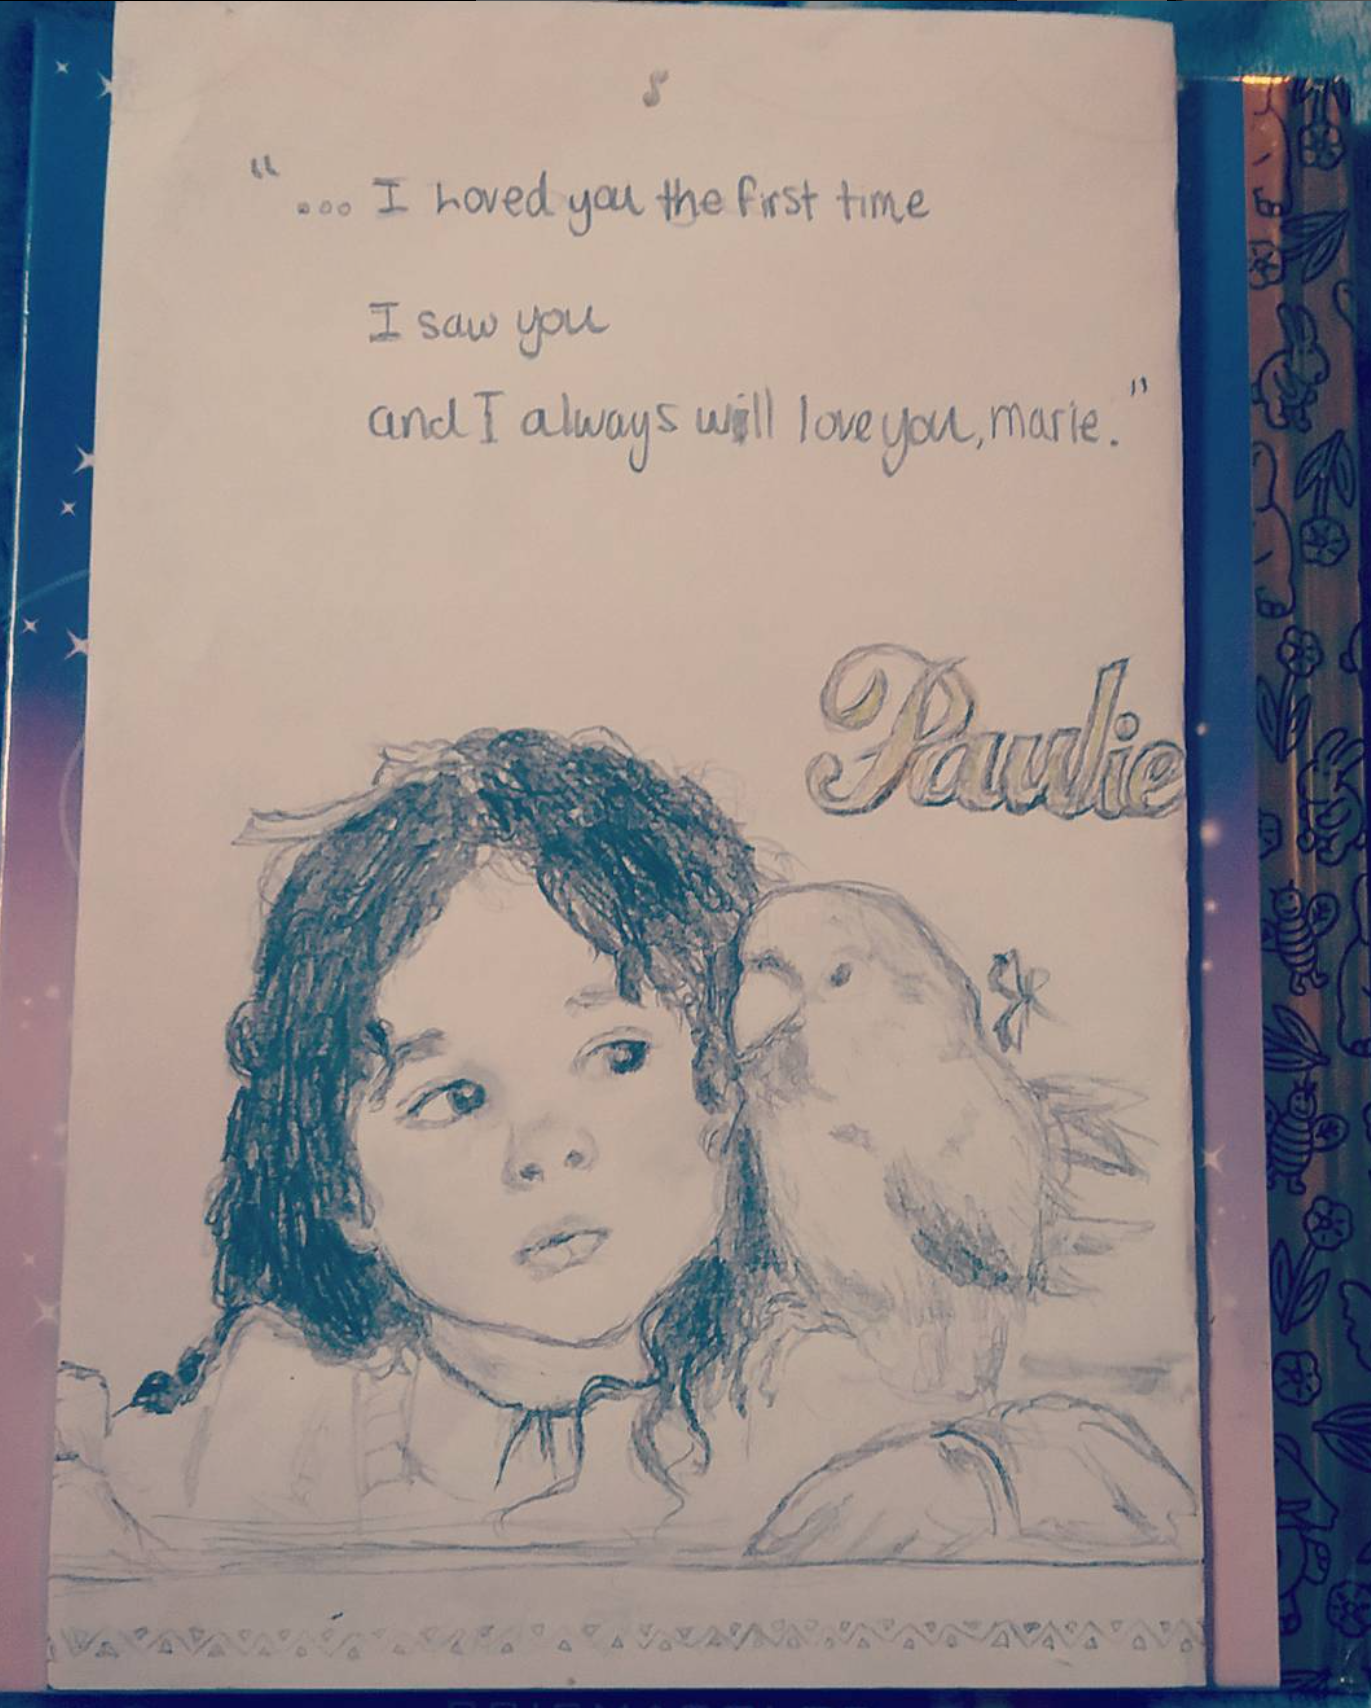 "... I Loved you the first time
I saw you
and I always will love you, marie."
Paulie